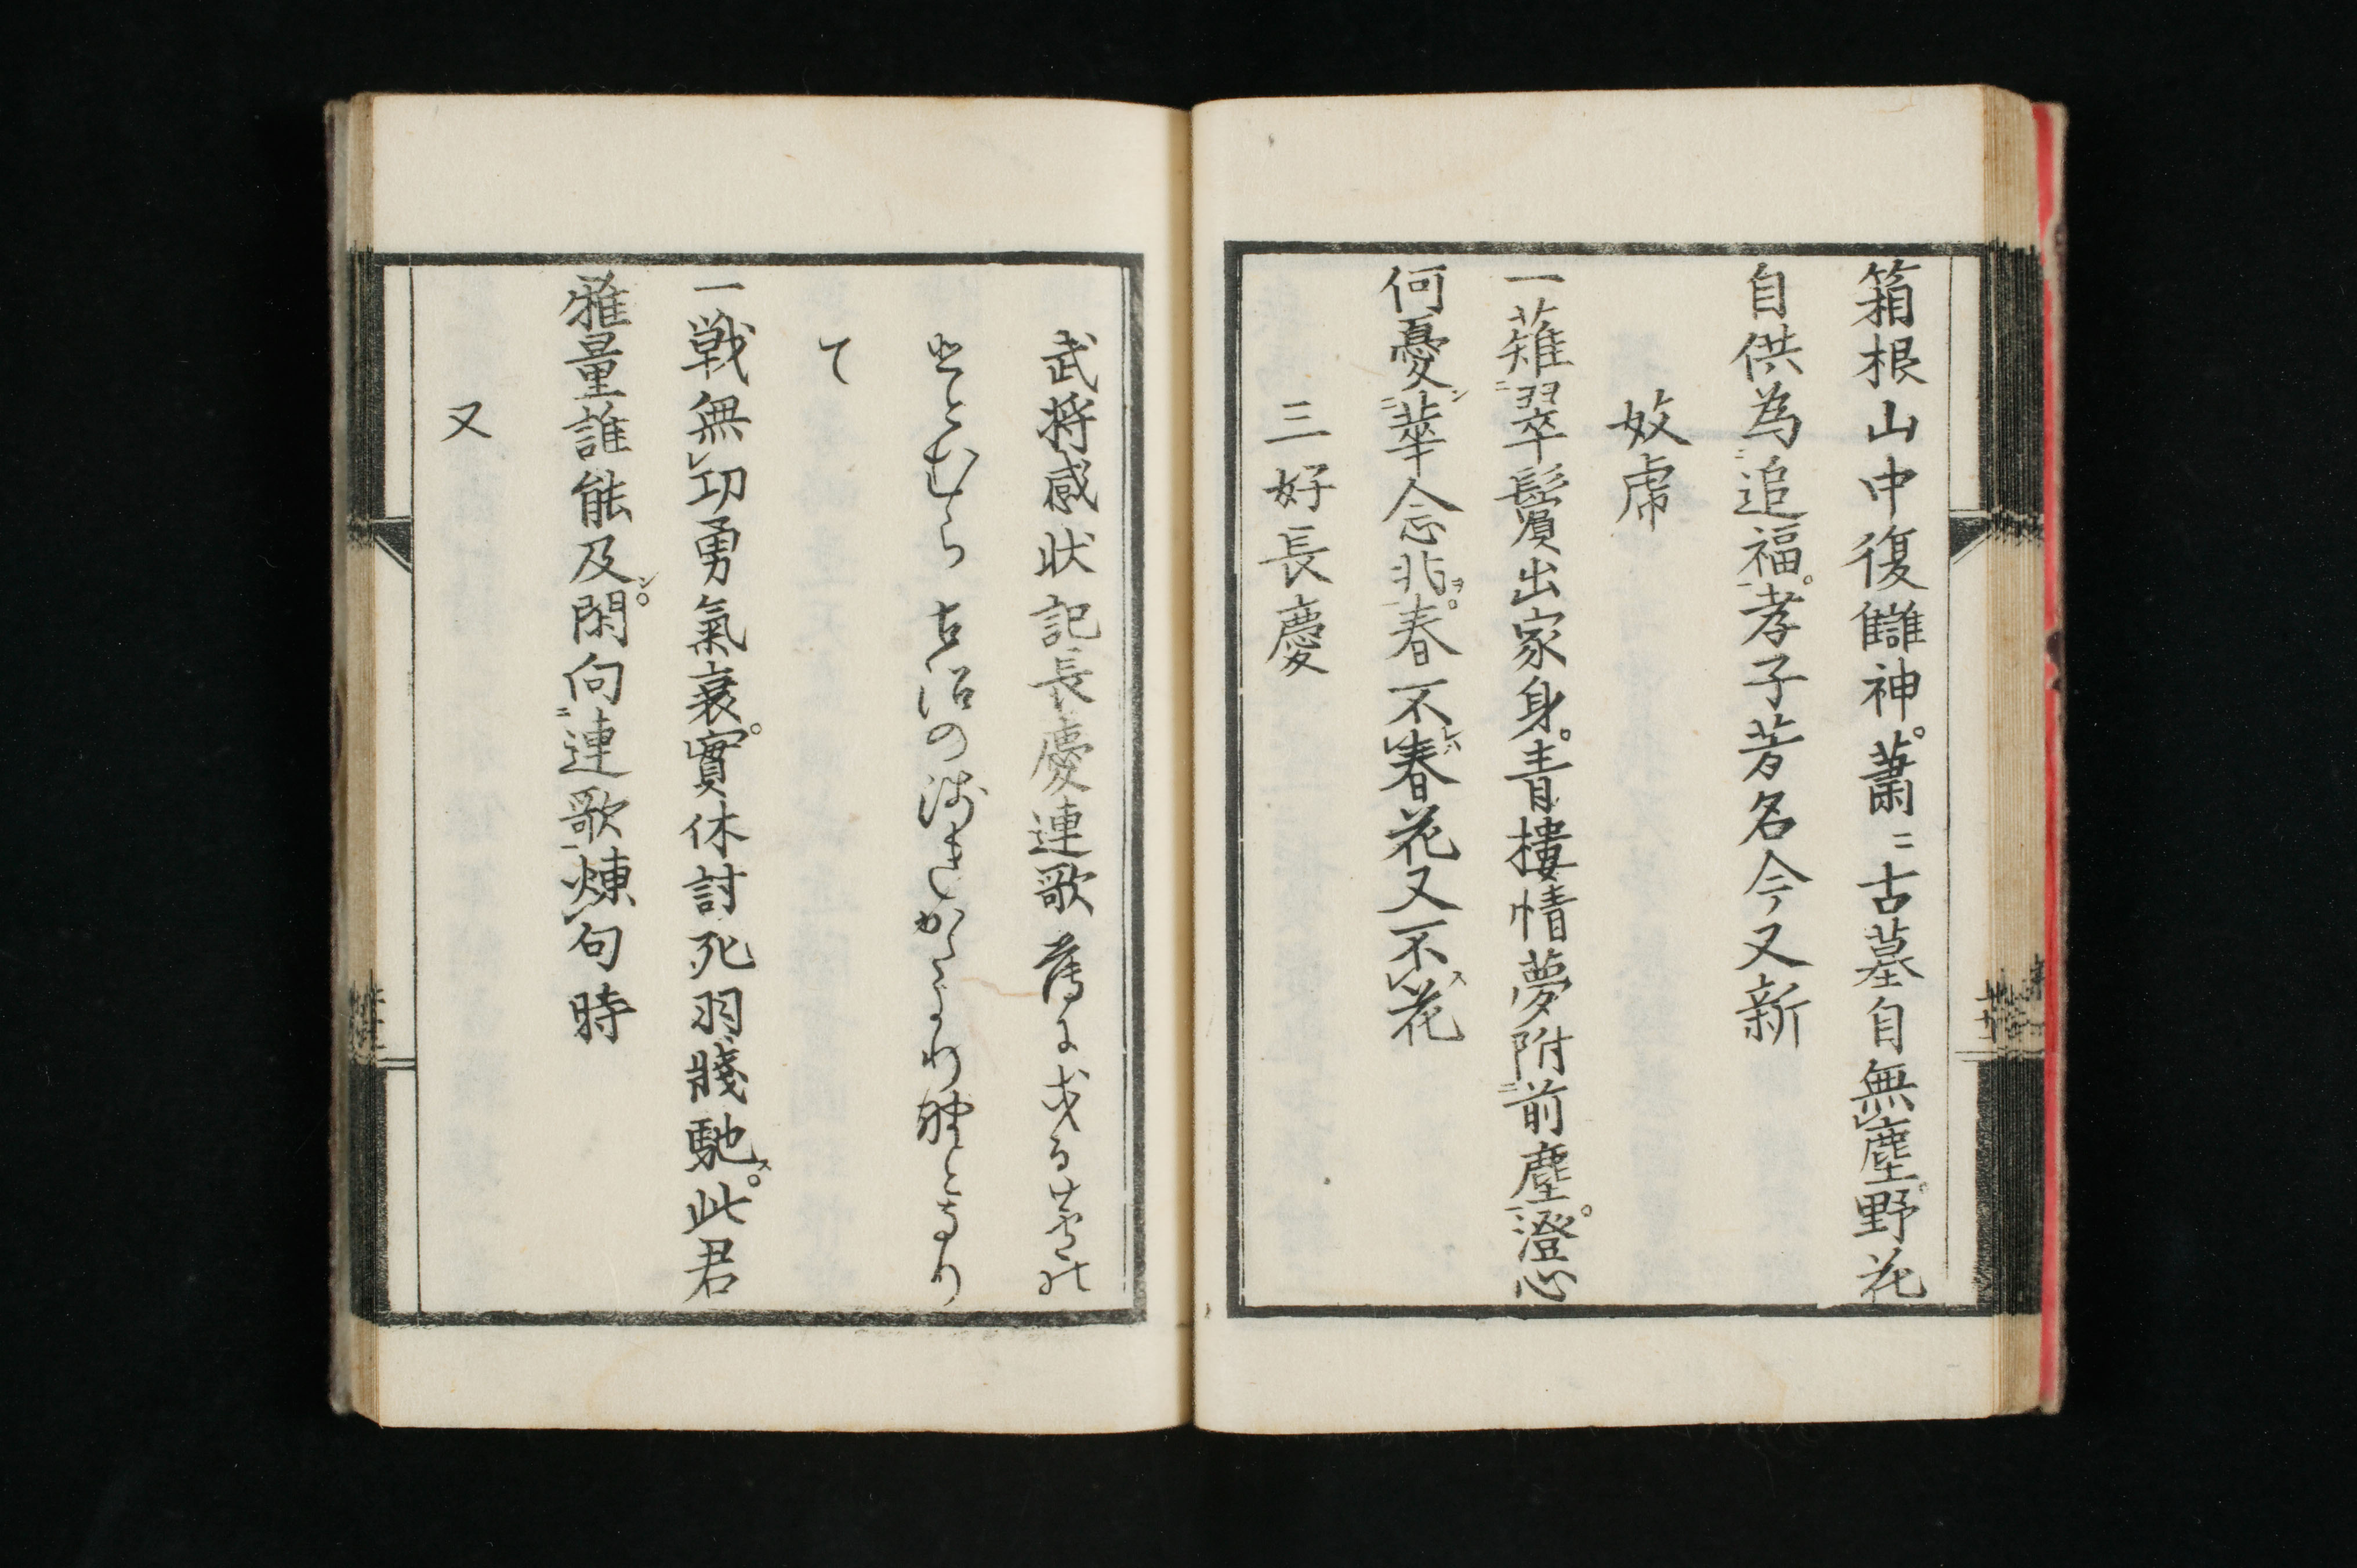 箱根山中復讎神。蕭〻古墓自無塵。野花
自供為追福。孝子芳名今又新
妓虎
一薙翠鬟出家身。青樓情夢附前塵。澄心
何憂華念非。春不春花又不花
三好長慶
武将感状記長慶連歌
古沼の浅きかたより野となり
て
一戦無功勇氣衰。實休討死羽牋馳。此君
雅量誰能及。閑向連歌煉句時
又